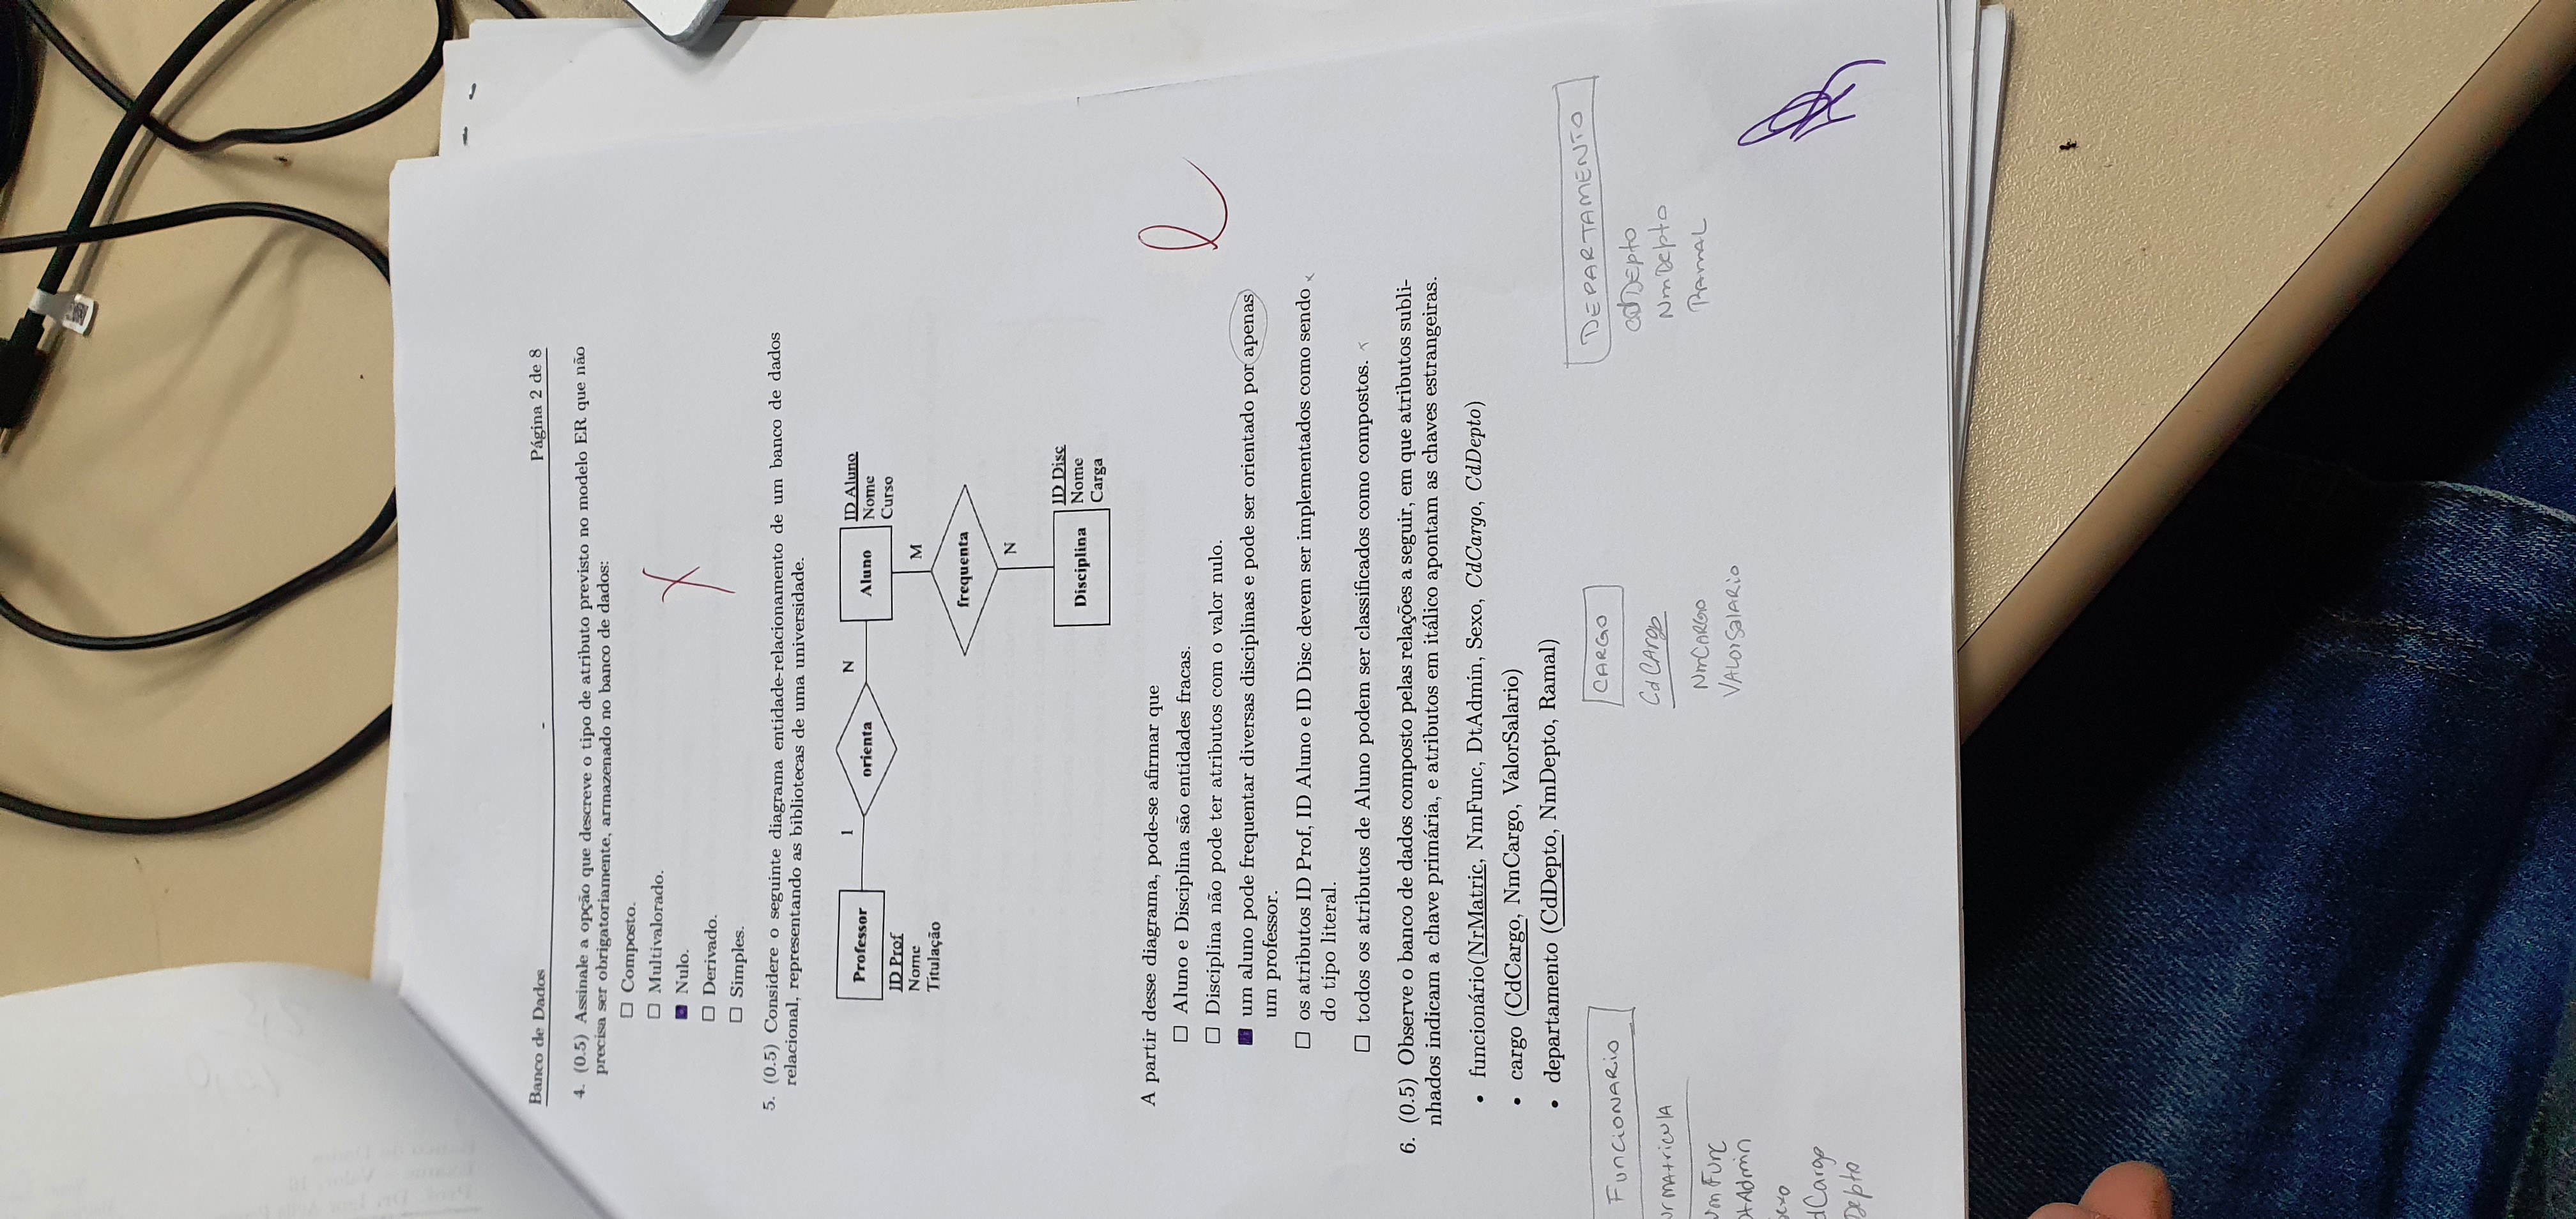 Banco de Dados - Página 2 de 8
4. (0.5) Assinale a opção que descreve o tipo de atributo previsto no modelo ER que não
precisa ser obrigatoriamente, armazenado no banco de dados:
Composto.
Multivalorado.
Nulo.
Derivado.
Simples.
5. (0.5) Considere o seguinte diagrama entidade-relacionamento de um banco de dados
relacional, representando as bibliotecas de uma universidade.
Professor 1 orienta N Aluno
ID Prof
Nome
Titulação
ID Aluno
Nome
Curso
M
frequenta
N
Disciplina
ID Disc
Nome
Carga
A partir desse diagrama, pode-se afirmar que
Aluno e Disciplina são entidades fracas.
Disciplina não pode ter atributos com o valor nulo.
um aluno pode frequentar diversas disciplinas e pode ser orientado por apenas
um professor.
os atributos ID Prof, ID Aluno e ID Disc devem ser implementados como sendo
do tipo literal.
todos os atributos de Aluno podem ser classificados como compostos.
6. (0.5) Observe o banco de dados composto pelas relações a seguir, em que atributos subli-
nhados indicam a chave primária, e atributos em itálico apontam as chaves estrangeiras.
• funcionário(NrMatric, NmFunc, DtAdmin, Sexo, CdCargo, CdDepto)
• cargo (CdCargo, NmCargo, ValorSalario)
• departamento (CdDepto, NmDepto, Ramal)
FUNCIONARIO
NrMAtriculA
NmFunc
DtAdmin
Sexo
dCargo
Depto
CARGO
CdCArgo
NmCARGO
VALorSalARio
DEPARTAMENTO
cdDEpto
NmDEpto
RAMAL